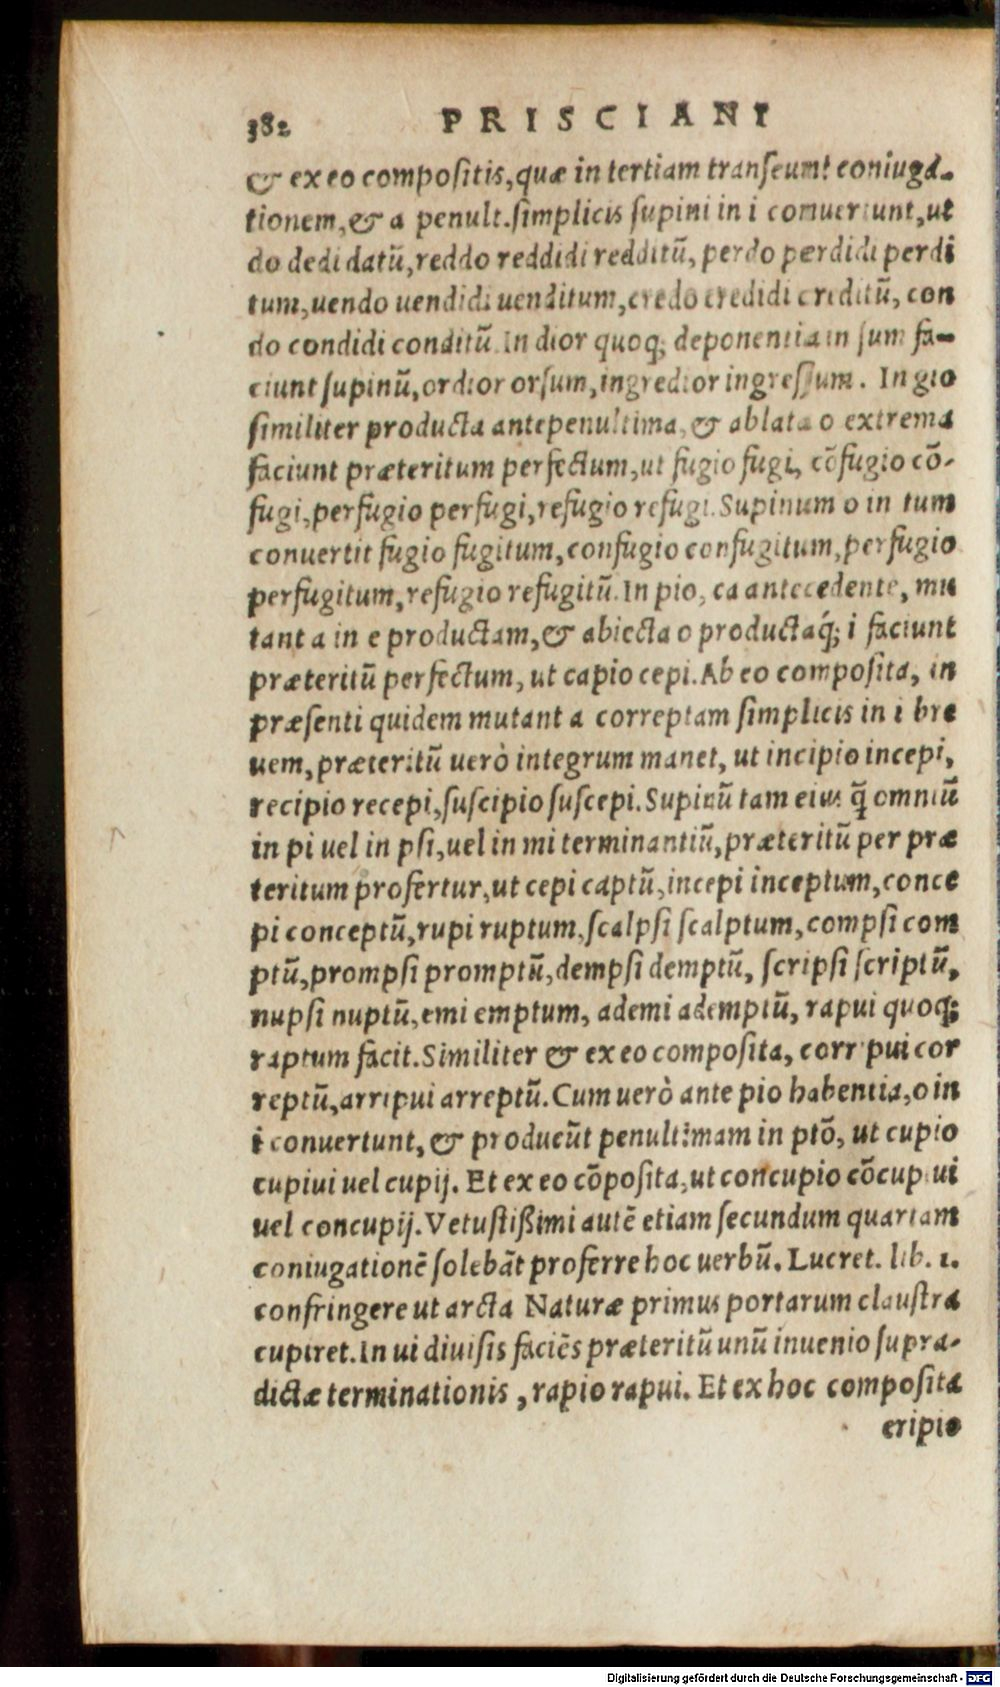 382 PRISCIANI
& ex eo compositis, quæ in tertiam transeunt coniuga-
tionem, & a penult. simplicis supini in i conuertunt, ut
do dedi datũ, reddo reddidi redditũ, perdo perdidi perdi
tum, uendo uendidi uenditum, credo credidi creditũ, con
do condidi conditũ. In dior quoq; deponentia in sum fa-
ciunt supinũ, ordior orsum, ingredior ingressum. In gio
similiter producta antepenultima, & ablata o extrema
faciunt præteritum perfectum, ut fugio fugi, cõfugio cõ-
fugi, perfugio perfugi, refugio refugi. Supinum o in tum
conuertit fugio fugitum, confugio confugitum, perfugio
perfugitum, refugio refugitũ. In pio, ca antecedente, mu
tant a in e productam, & abiecta o productaq́; i faciunt
præteritũ perfectum, ut capio cepi. Ab eo composita, in
præsenti quidem mutant a correptam simplicis in i bre
uem, præteritũ uerò integrum manet, ut incipio incepi,
recipio recepi, suscipio suscepi. Supinũ tam eius q̃ omniũ
in pi uel in psi, uel in mi terminantiũ, præteritũ per præ
teritum profertur, ut cepi captũ, incepi inceptum, conce
pi conceptũ, rupi ruptum, scalpsi scalptum, compsi com
ptũ, prompsi promptũ, dempsi demptũ, scripsi scriptũ,
nupsi nuptũ, emi emptum, ademi ademptũ, rapui quoq;
raptum facit. Similiter & ex eo composita, corripui cor
reptũ, arripui arreptũ. Cum uerò ante pio habentia, o in
i conuertunt, & producũt penultimam in ptõ, ut cupio
cupiui uel cupij. Et ex eo cõposita, ut concupio cõcupiui
uel concupij. Vetustißimi autẽ etiam secundum quartam
coniugationẽ solebãt proferre hoc uerbũ. Lucret. lib. 1.
confringere ut arcta Naturæ primus portarum claustra
cupiret. In ui diuisis faciẽs præteritũ unũ inuenio supra-
dictæ terminationis, rapio rapui. Et ex hoc composita
eripio
Digitalisierung gefördert durch die Deutsche Forschungsgemeinschaft - DFG